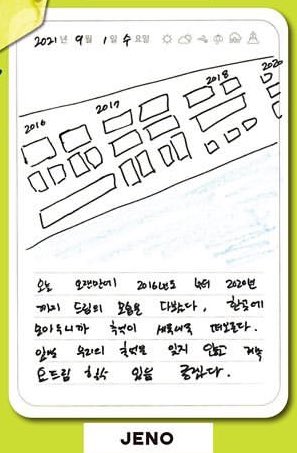 2021년 9월 1일 수요일
2016
2017
2018
2020
오늘 오랜만에 2016년도 부터 2020년
까지 드림의 모습을 다봤다. 한곳에
모아두니까 추억이 새록새록 떠오른다.
일단 우리의 추억을 잊지 않고 계속
드림 하고 있음 좋겠다.
JENO